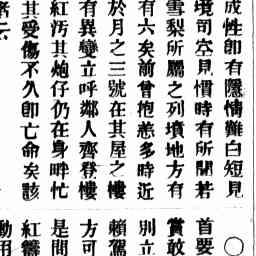 成性即有隱情難白短見
境司空見慣時有所聞若
雪梨所屬之列墳地方有
有六矣前曾抱恙多時近
於月之三號在其屋之樓
有異變立呼鄰人齊登樓
紅污其炮仔仍在身畔忙
其受傷不久卽亡命矣該
○
首要
賞敢
別立
賴駕
方可
是間
紅鬚
動用